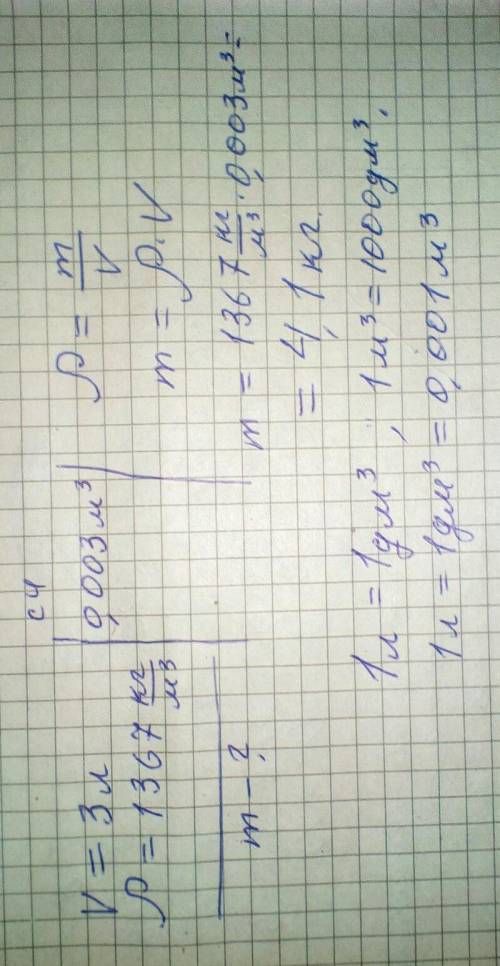 СИ
V = 3л
0,003 м³
ρ = 1367 кг/м³
m - ?
ρ = m/V
m = ρ·V
m = 1367 кг/м³ · 0,003 м³ =
= 4,1 кг.
1л = 1дм³, 1м³ = 1000дм³,
1л = 1дм³ = 0,001 м³